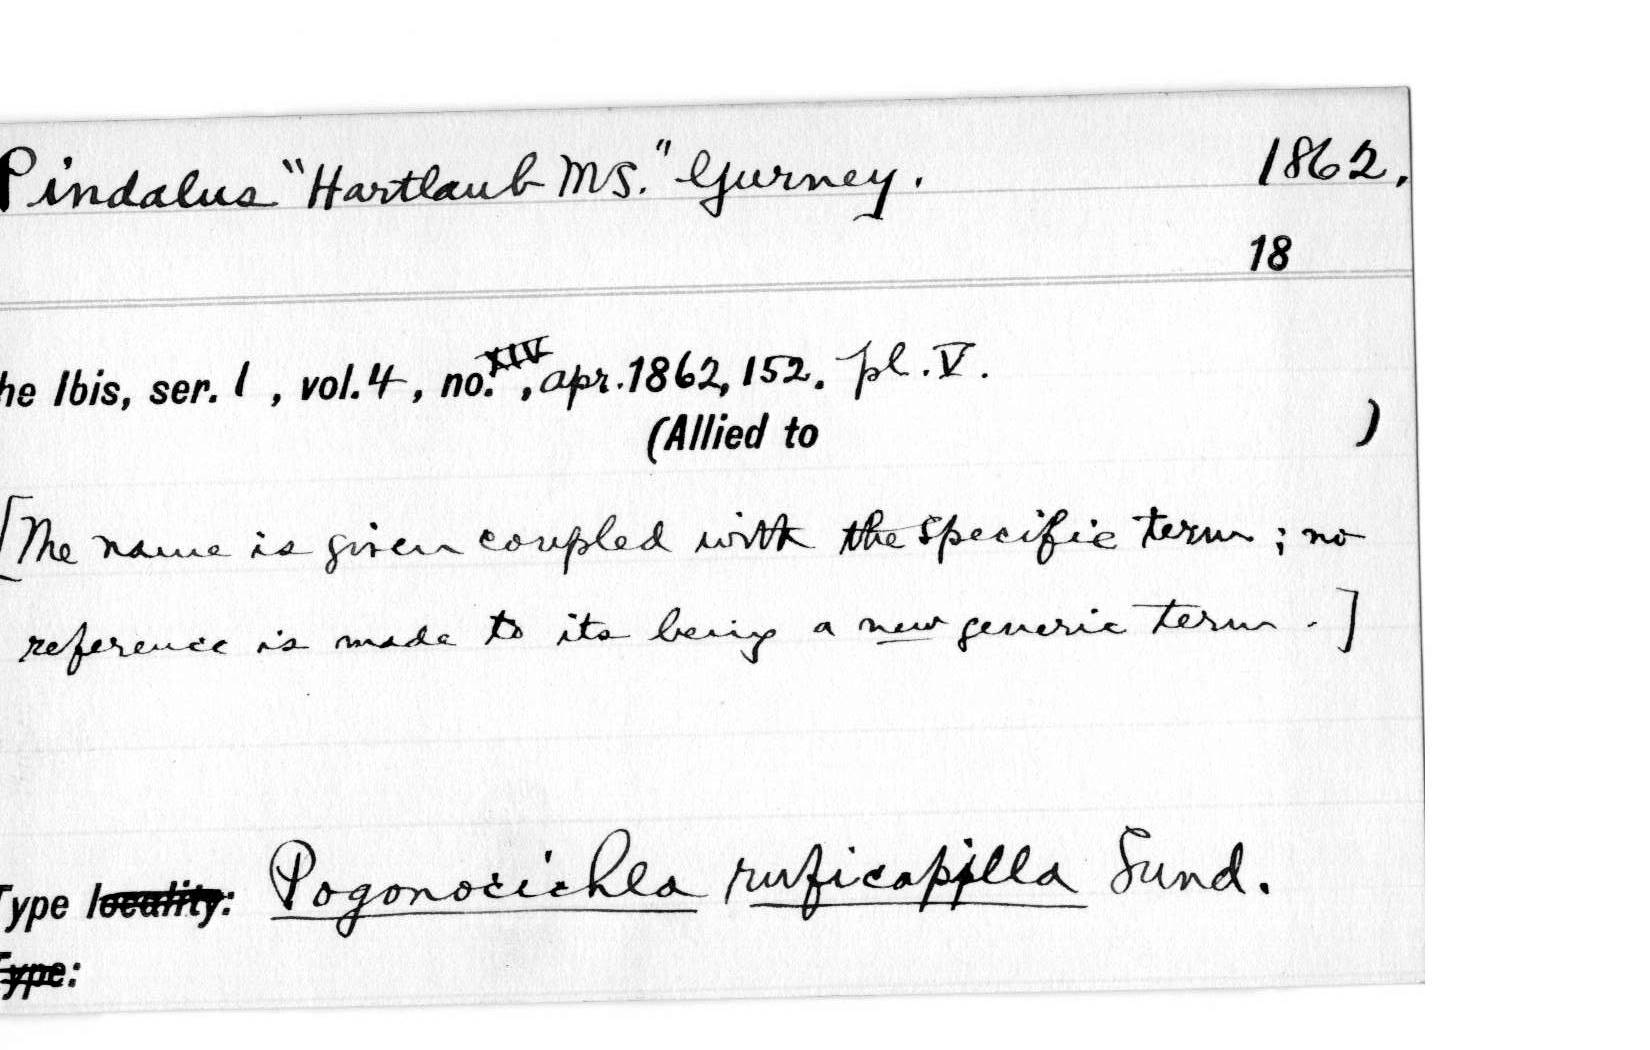 Pindalus "Hartlaub MS." Gurney. 1862.
18
he Ibis, ser. 1, vol. 4, no. XIV, apr. 1862, 152. pl. V.
(Allied to )
[The name is given coupled with the specific term; no
reference is made to its being a new generic term.]
Type locality: Pogonocichla ruficapilla Sund.
Type: